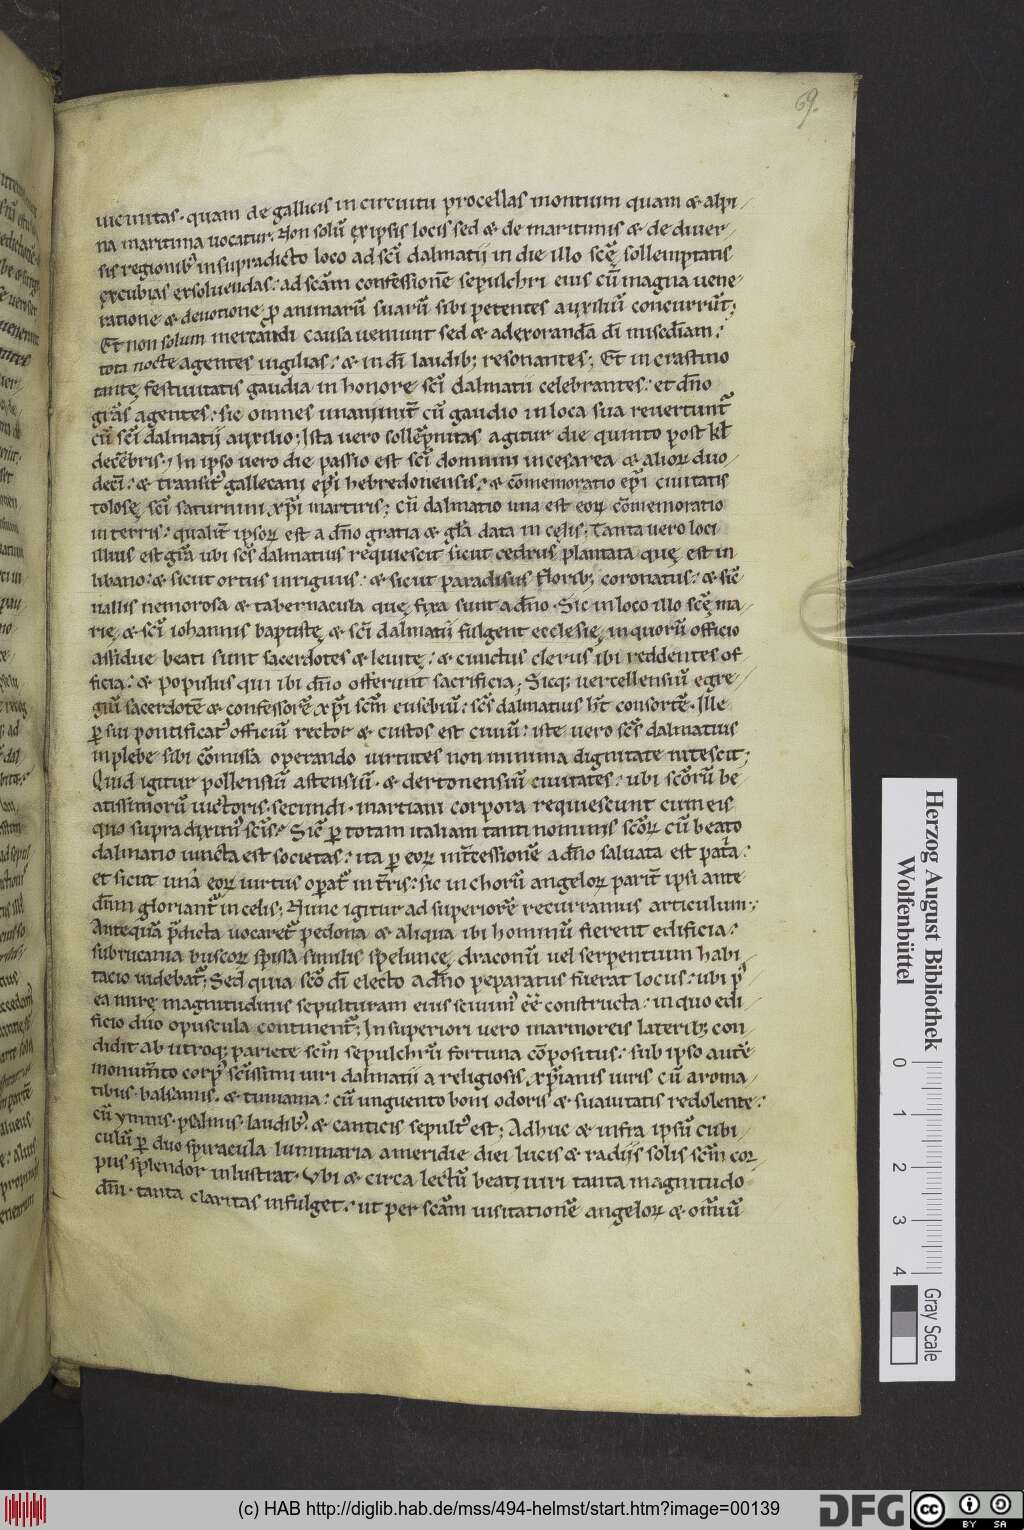 69.
uicinitas · quam de gallicis in circuitu procellas montium quam & alpi
na maritima uocatur. Non solū ex ipsis locis sed & de maritimis & de diuer
sis regionibꝰ in supradicto loco ad sc̄i dalmatii in die illo scę̄ sollempnitatis
excubias exsoluendas : ad scām confessionē sepulchri eius cū magna uene
ratione & deuotione p̱ animarū suarū sibi petentes auxiliū concurrūt ;
Et non solum mercandi causa ueniunt sed & adexorandā dī miscdīam :
tota nocte agentes uigilias : & in dī laudib; resonantes ; Et in crastino
tantę festiuitatis gaudia in honore sc̄i dalmatii celebrantes : et dn̄o
grās agentes : sic omnes unanimit̄ cū gaudio in loca sua reuertunt̄
cū sc̄i dalmatii auxilio ; Ista uero sollēpnitas agitur die quinto post kł
decēbris ; In ipso uero die passio est sc̄i domnini in cesarea & alioꝝ duo
decī : & transitꝰ gallecani ep̄i hebredonensis : & cōmemoratio ep̄i ciuitatis
tolosę sc̄i saturnini xp̄i martiris ; Cū dalmatio una est eoꝝ cōmemoratio
in terris : qualit̄ ipsoꝝ est a dn̄o gratia & glā data in cęlis ; Tanta uero loci
illius est grā ubi sc̄s dalmatius requiescit sicut cedrus plantata quę est in
libano : & sicut ortus irriguus : & sicut paradisus florib; coronatus : & sic̄
uallis nemorosa & tabernacula quę fixa sunt a dn̄o · Sic in loco illo scę̄ ma
rię & sc̄i iohannis baptistę & sc̄i dalmatii fulgent ecclesię in quorū officio
assidue beati sunt sacerdotes & leuitę : & cunctus clerus ibi reddentes of
ficia : & populus qui ibi dn̄o offerunt sacrificia ; Sicq; uercellensiū egre
giū sacerdotē & confessorē xp̄i scm̄ eusebiū : sc̄s dalmatius ht̄ consortē · Ille
p̱ sui pontificatꝰ officiū rector & custos est ciuiū : iste uero sc̄s dalmatius
in plebe sibi cōmissa operando uirtutes non minima dignitate nitescit ;
Quid igitur pollensiū astensiū · & dertonensiū ciuitates : ubi scōrū be
atissimorū uictoris · secundi · martiani corpora requiescunt cum eis
quo supra diximꝰ scīs : Sic̄ p̱ totam italiam tanti nominis scōꝝ cū beato
dalmatio iuncta est societas : ita p̱ eoꝝ int̄cessionē a dn̄o saluata est pat̄a :
et sicut una eoꝝ uirtus opat̄ in t̄ris : sic in chorū angeloꝝ parit̄ ipsi ante
dn̄m gloriant̄ in celis ; Nunc igitur ad superiorē recurramus articulum ;
Antequā p̄dicta uocaret̄ pedona & aliqua ibi hominū fierent edificia :
subrucania buscoꝝ spissa similis speluncę draconū uel serpentium habi
tacio uidebat̄ ; Sed quia scō dī electo a dn̄o p̱peratus fuerat locus : ubi p̄
ea mirę magnitudinis sepulturam eius scimꝰ eē̄ constructa : in quo edi
ficio duo opuscula continent̄ ; In superiori uero marmoreis laterib; con
didit ab utroq; pariete scm̄ sepulchrū fortuna cōpositus : sub ipso autē
monum̄to corpꝰ sc̄issimi uiri dalmatii a religiosis xp̄ianis uiris cū aroma
tibus · balsamis · & timiama : cū unguento boni odoris & suauitatis redolente :
cū ymnis · psalmis · laudibꝰ & canticis sepultꝰ est ; Adhuc & infra ipsū cubi
culū p̱ duo spiracula luminaria a meridie diei lucis & radiis solis scm̄ cor
pus splendor inlustrat · Ubi & circa lectū beati uiri tanta magnitudo
dn̄i · tanta claritas infulget : ut per scām uisitationē angeloꝝ & omiū
Herzog August Bibliothek
Wolfenbüttel
0 1 2 3 4
Gray Scale
(c) HAB http://diglib.hab.de/mss/494-helmst/start.htm?image=00139
DFG
cc BY SA